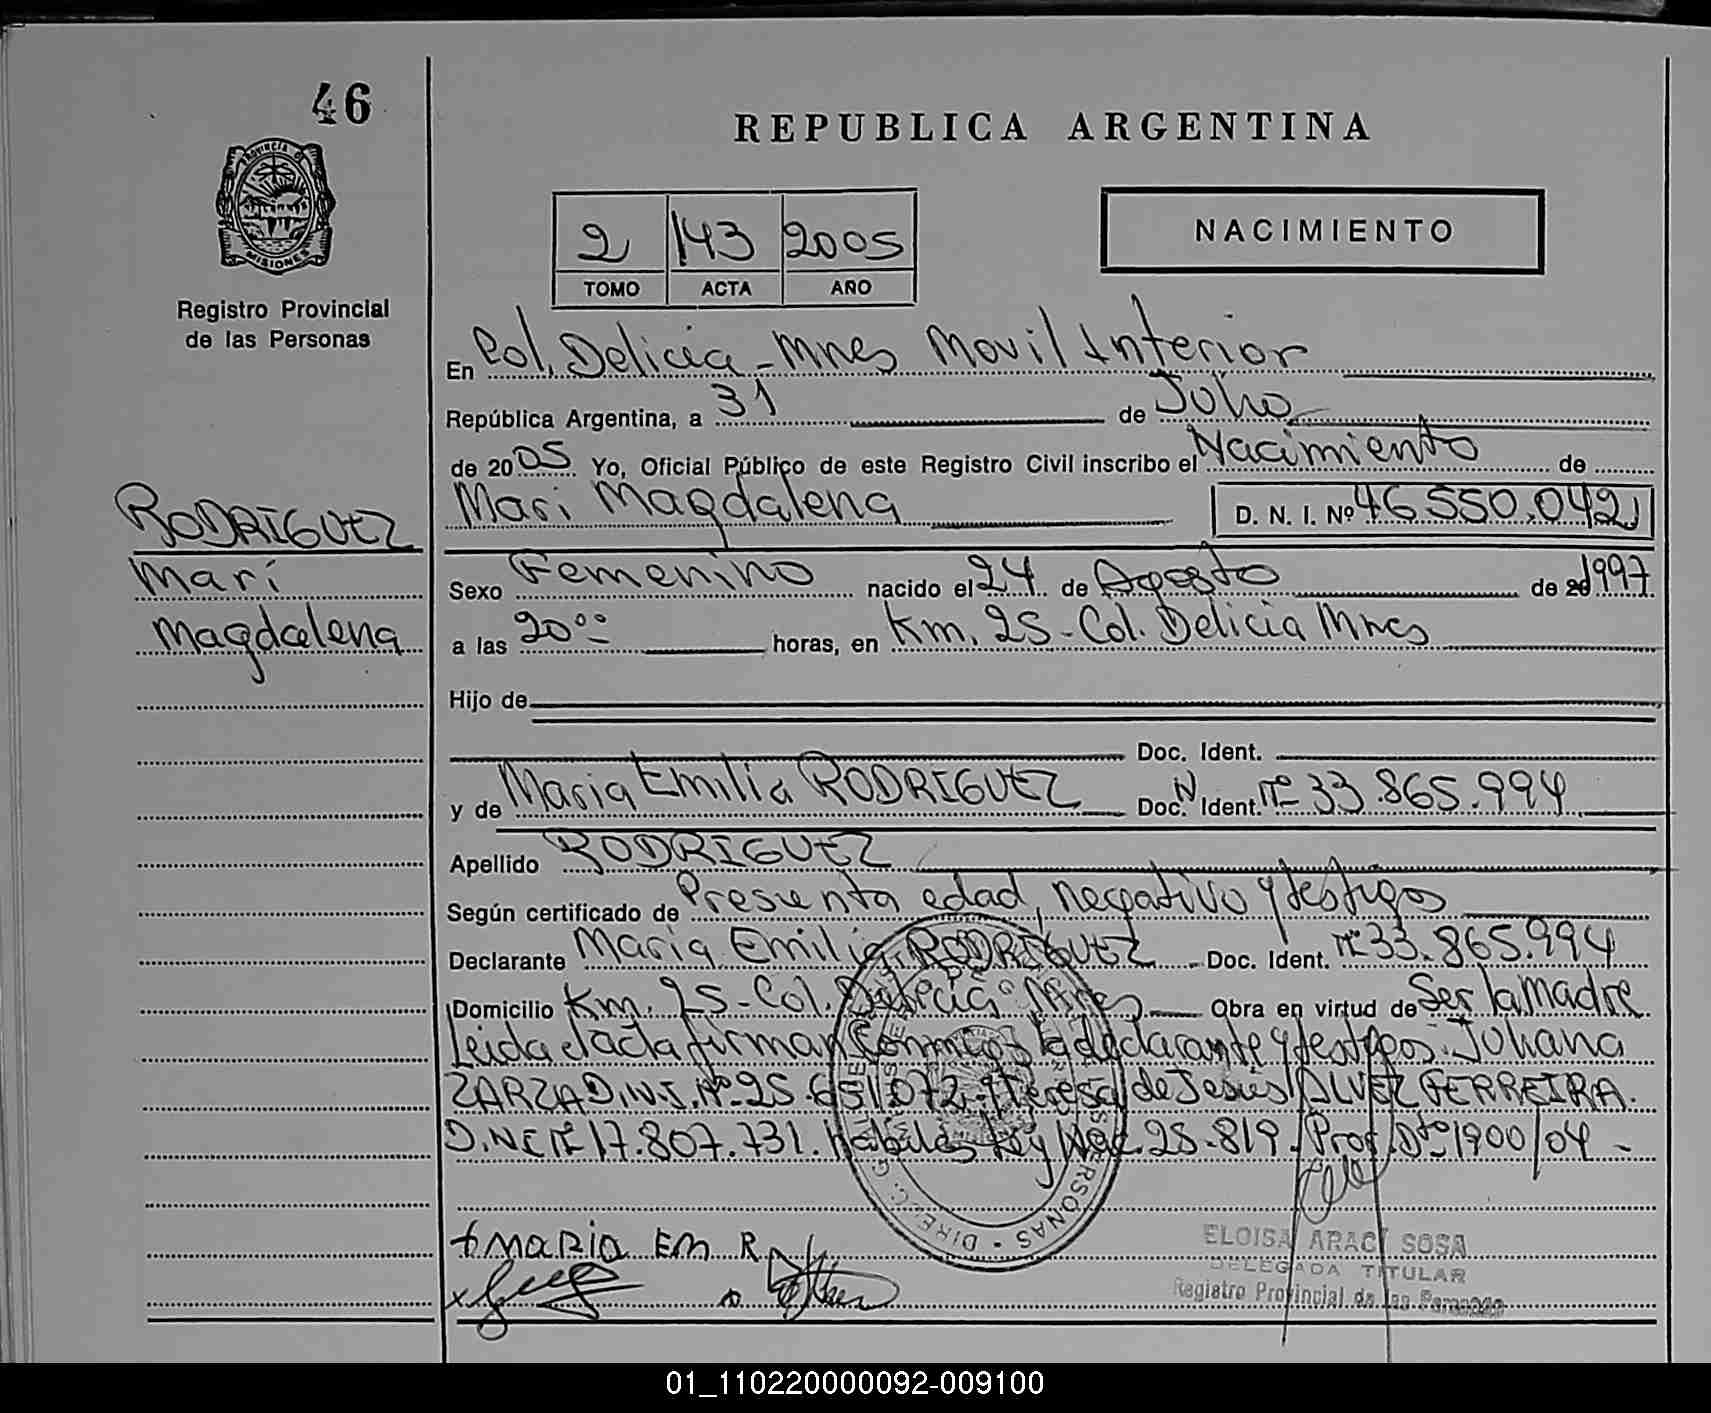 46
REPUBLICA ARGENTINA
PROVINCIA DE
MISIONES
Registro Provincial
de las Personas
2 143 2005
TOMO ACTA AÑO
NACIMIENTO
En Col. Delicia - Mnes Movil Interior
República Argentina, a 31 de Julio
de 2005 Yo, Oficial Público de este Registro Civil inscribo el Nacimiento de
Mari Magdalena D. N. I. Nº 46.550.042
RODRIGUEZ
Mari
Magdalena
Sexo Femenino nacido el 24 de Agosto de 20 1997
a las 20°° horas, en Km. 25 - Col. Delicia Mnes
Hijo de
Doc. Ident.
y de Maria Emilia RODRIGUEZ Doc. N Ident. Nº 33.865.994
Apellido RODRIGUEZ
Según certificado de Presunta edad, negativo y testigos
Declarante Maria Emilia RODRIGUEZ Doc. Ident. Nº 33.865.994
Domicilio Km. 25 - Col. Delicia Mnes Obra en virtud de Ser la madre
Leida el acta firman conmigo la declarante y testigos: Juliana
ZARZA D.N.I. Nº 25.651.072 - Teresa de Jesús ALVEZ FERREIRA.
D.N.I Nº 17.807.731. habiles Ley Nac. 25.819. Prof. Dto 1900/04 -
MARIA EM R
ELOISA ARACI SOSA
DELEGADA TITULAR
Registro Provincial de las Personas
01_110220000092-009100